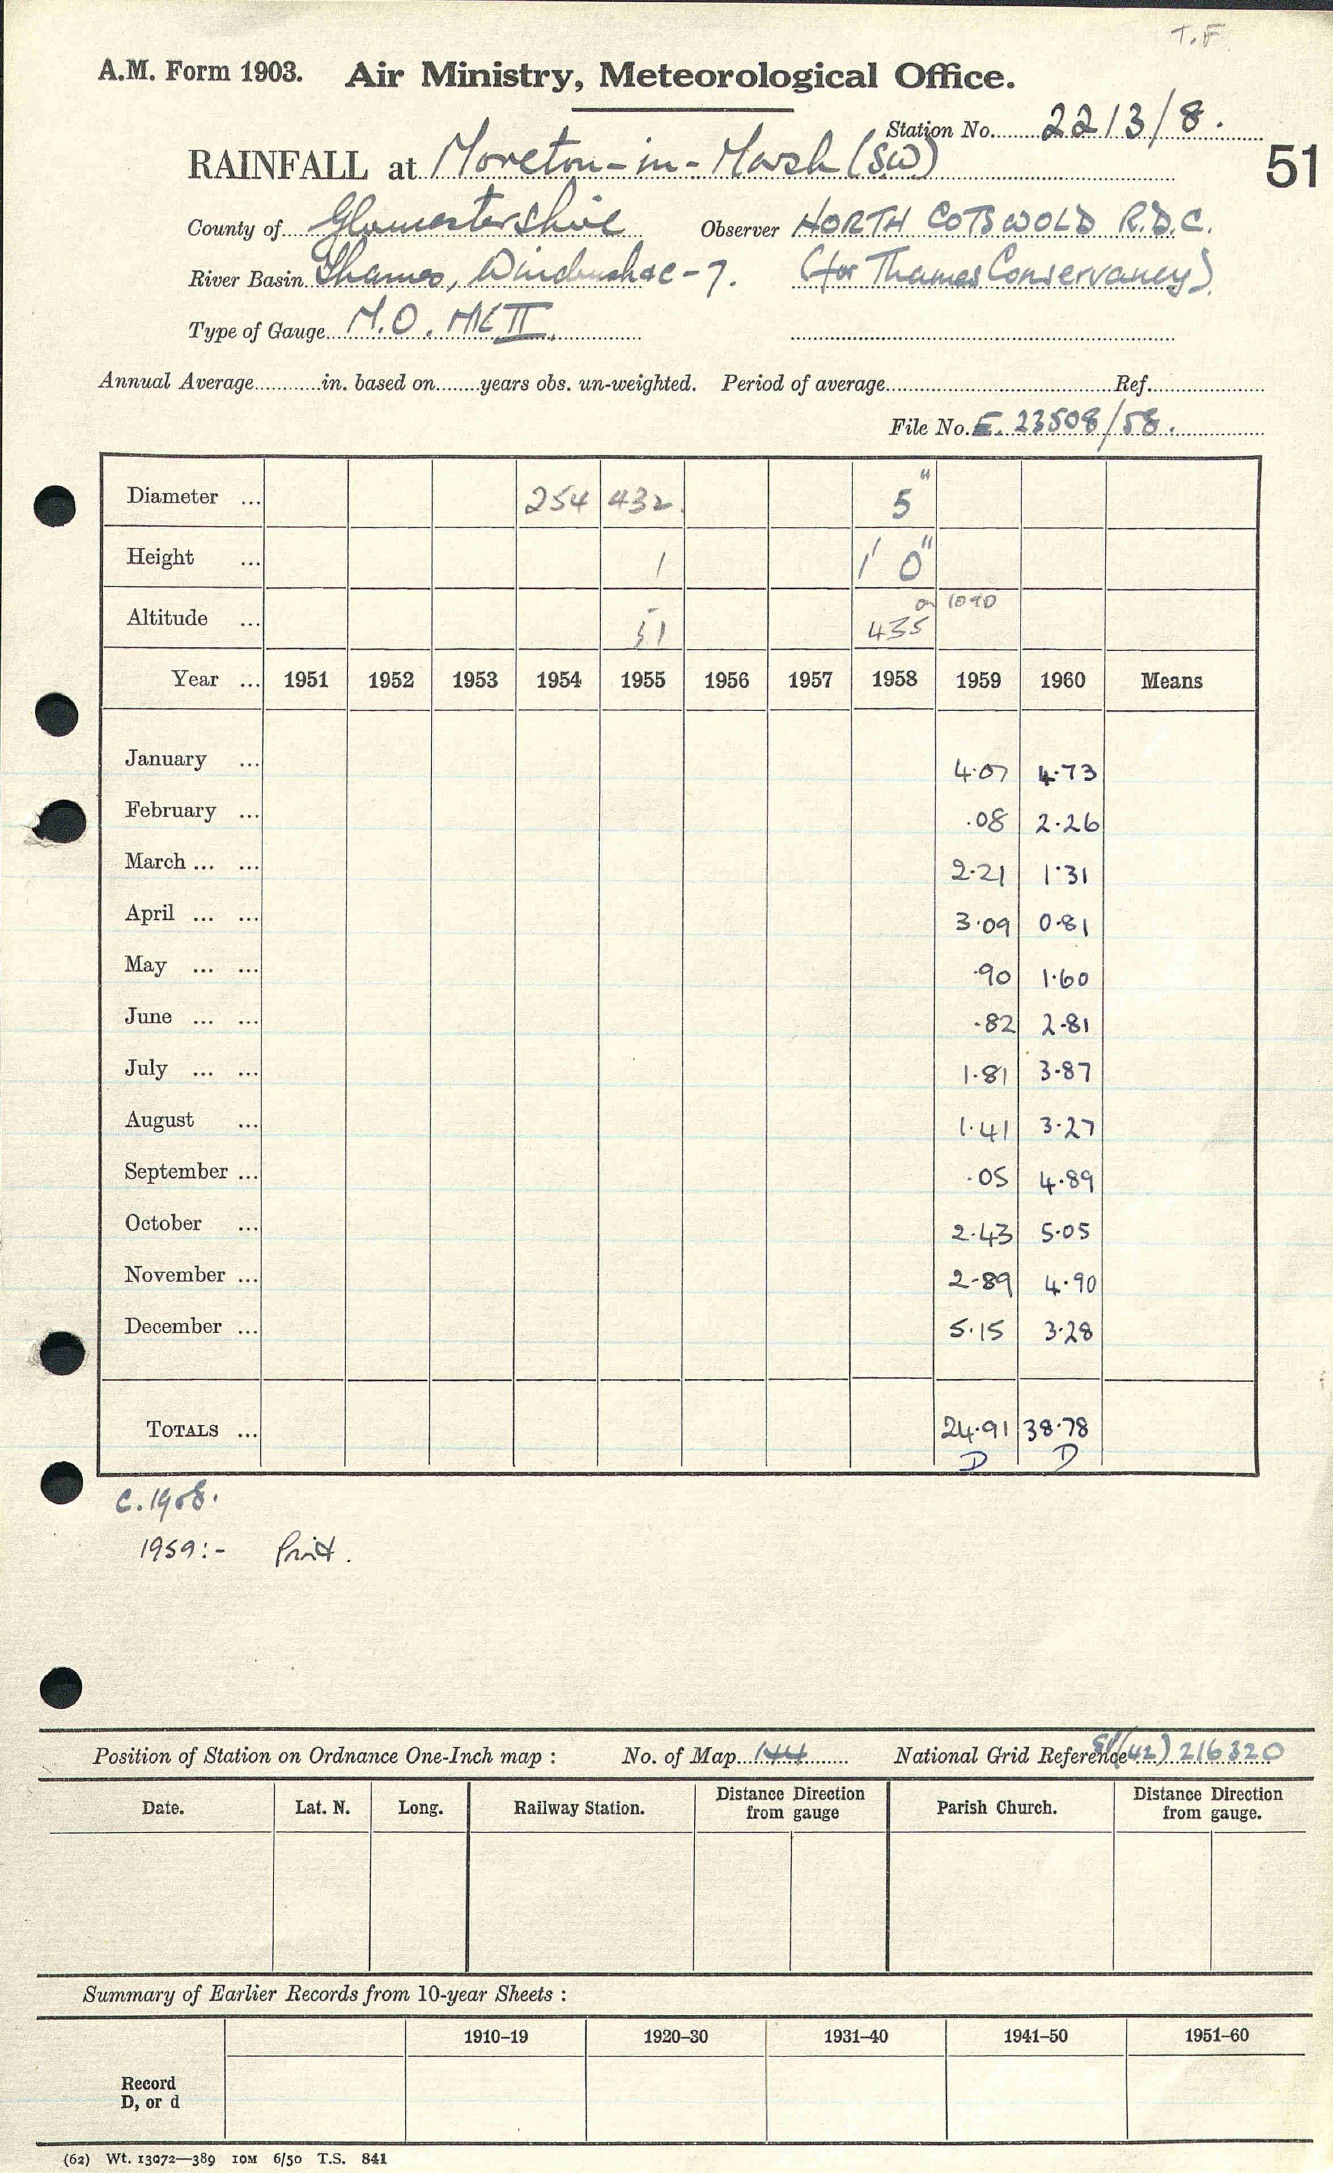 T.F.
A.M. Form 1903. Air Ministry, Meteorological Office.
Station No. 2213/8.
RAINFALL at Moreton-in-Marsh (SW)
51
County of Gloucestershire Observer NORTH COTSWOLD R.D.C.
River Basin Thames, Windrush &c - 7. (for Thames Conservancy)
Type of Gauge M.O. MK II.
Annual Average in. based on years obs. un-weighted. Period of average Ref.
File No. E. 23508/58.
Diameter ... 254 432 5"
Height ... 1 1' 0"
Altitude ... 51 435
Year ... 1951 1952 1953 1954 1955 1956 1957 1958 1959 1960 Means
January ... 4.07 4.73
February ... .08 2.26
March ... ... 2.21 1.31
April ... ... 3.09 0.81
May ... ... .90 1.60
June ... ... .82 2.81
July ... ... 1.81 3.87
August ... 1.41 3.27
September ... .05 4.89
October ... 2.43 5.05
November ... 2.89 4.90
December ... 5.15 3.28
TOTALS ... 24.91 38.78
D D
C. 1958.
1959:- Print.
Position of Station on Ordnance One-Inch map : No. of Map 144 National Grid Reference (42) 216320
Date. Lat. N. Long. Railway Station. Distance from Direction gauge Parish Church. Distance from Direction gauge.
Summary of Earlier Records from 10-year Sheets :
1910–19 1920–30 1931–40 1941–50 1951–60
Record
D, or d
(62) Wt. 13072—389 10M 6/50 T.S. 841